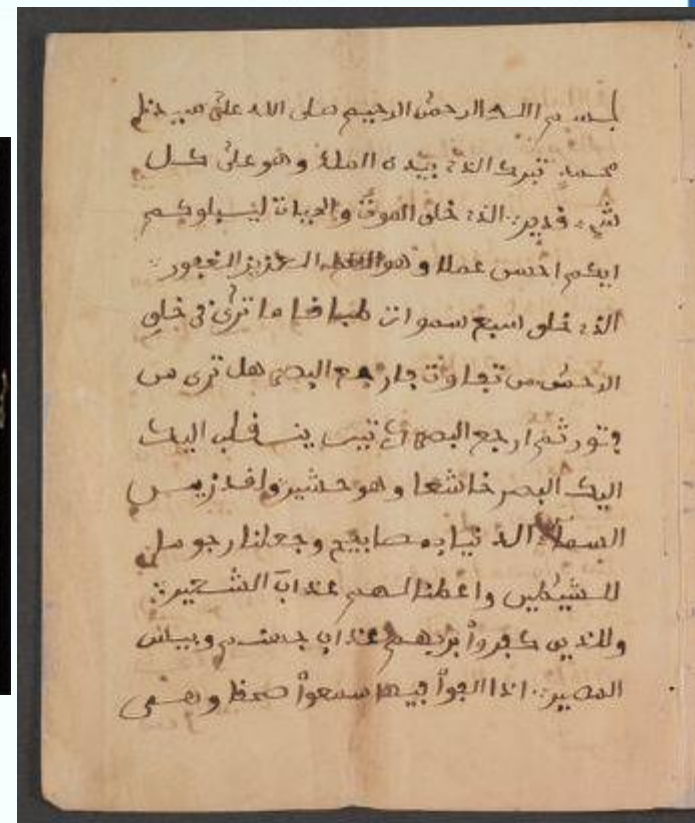 بسم الله الرحمن الرحيم صلى الله على سيدنا
محمد تبرك الذي بيده الملك وهو على كل
شيء قدير الذي خلق الموت والحيات ليبلوكم
ايكم احسن عملا وهو العزيز الغفور
الذي خلق سبع سموات طبافا ما ترى في خلق
الرحمن من تفاوت فارجع البصر هل ترى من
فتور ثم ارجع البصر كرتين ينقلب اليك
اليك البصر خاشعا وهو حشير ولقد زين
السماء الدنيا بمصابيح وجعلنا رجوما
للشيطين واعطنا لهم عذاب الشعير
وللذين كفروا بربهم عذاب جهنم وبيس
المصير اذا الفوا فيها سمعوا وهي